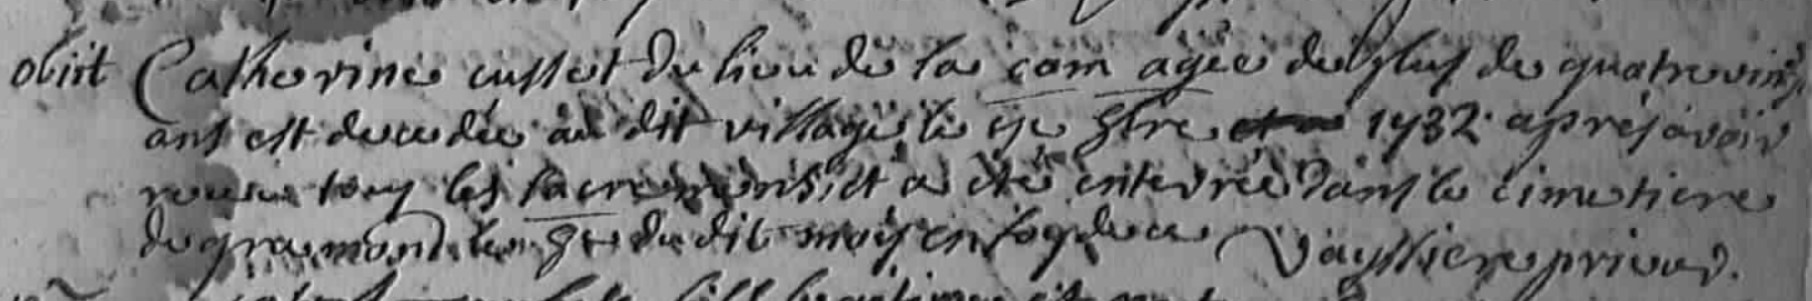 obiit Catherine cusset du lieu de la cam agée de plus de quatre vingt
ans est decedée au dit village le 9bre 1732 apres avoir
receu tous les sacremens et a été enterrée dans le cimetiere
de gramond le du dit mois en foy de ce Vayssiere prieur.